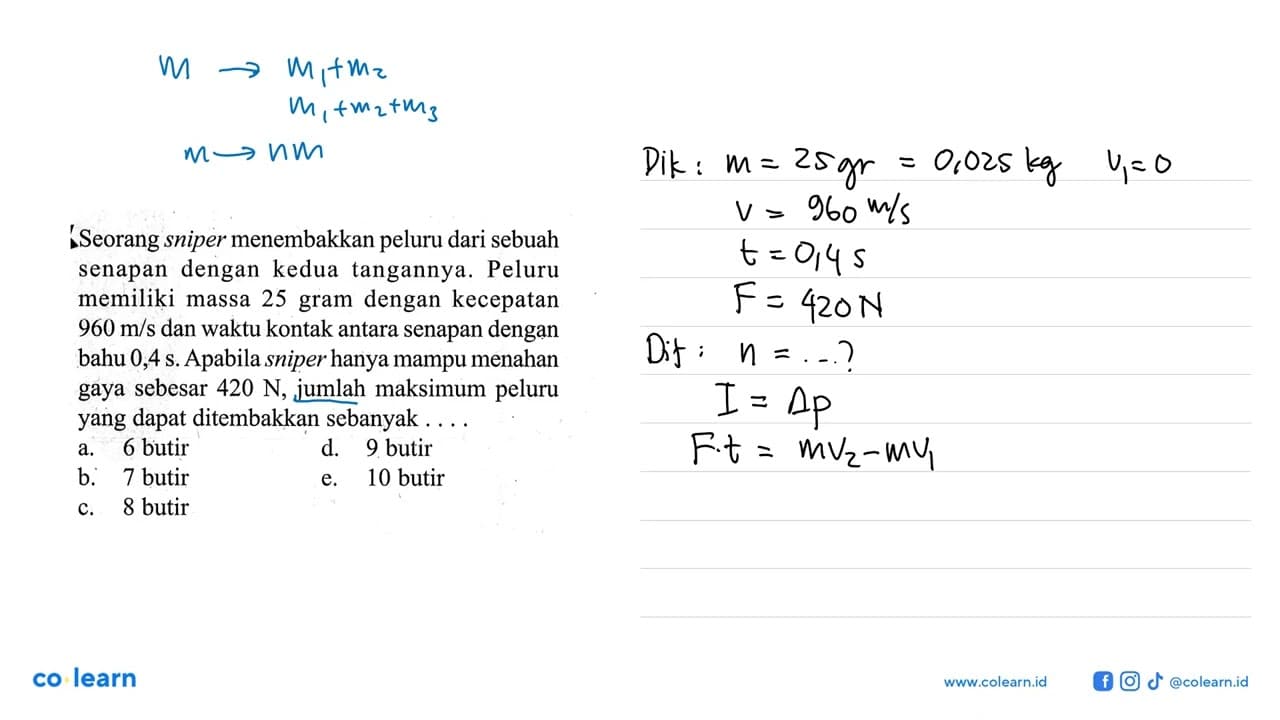 m → m₁+m₂
m₁+m₂+m₃
m → nm
Seorang sniper menembakkan peluru dari sebuah
senapan dengan kedua tangannya. Peluru
memiliki massa 25 gram dengan kecepatan
960 m/s dan waktu kontak antara senapan dengan
bahu 0,4 s. Apabila sniper hanya mampu menahan
gaya sebesar 420 N, jumlah maksimum peluru
yang dapat ditembakkan sebanyak . . . .
a. 6 butir d. 9 butir
b. 7 butir e. 10 butir
c. 8 butir
Dik : m = 25 gr = 0,025 kg v₁ = 0
v = 960 m/s
t = 0,4 s
F = 420 N
Dit : n = ...?
I = Δp
F.t = mv₂ - mv₁
co learn
www.colearn.id @colearn.id